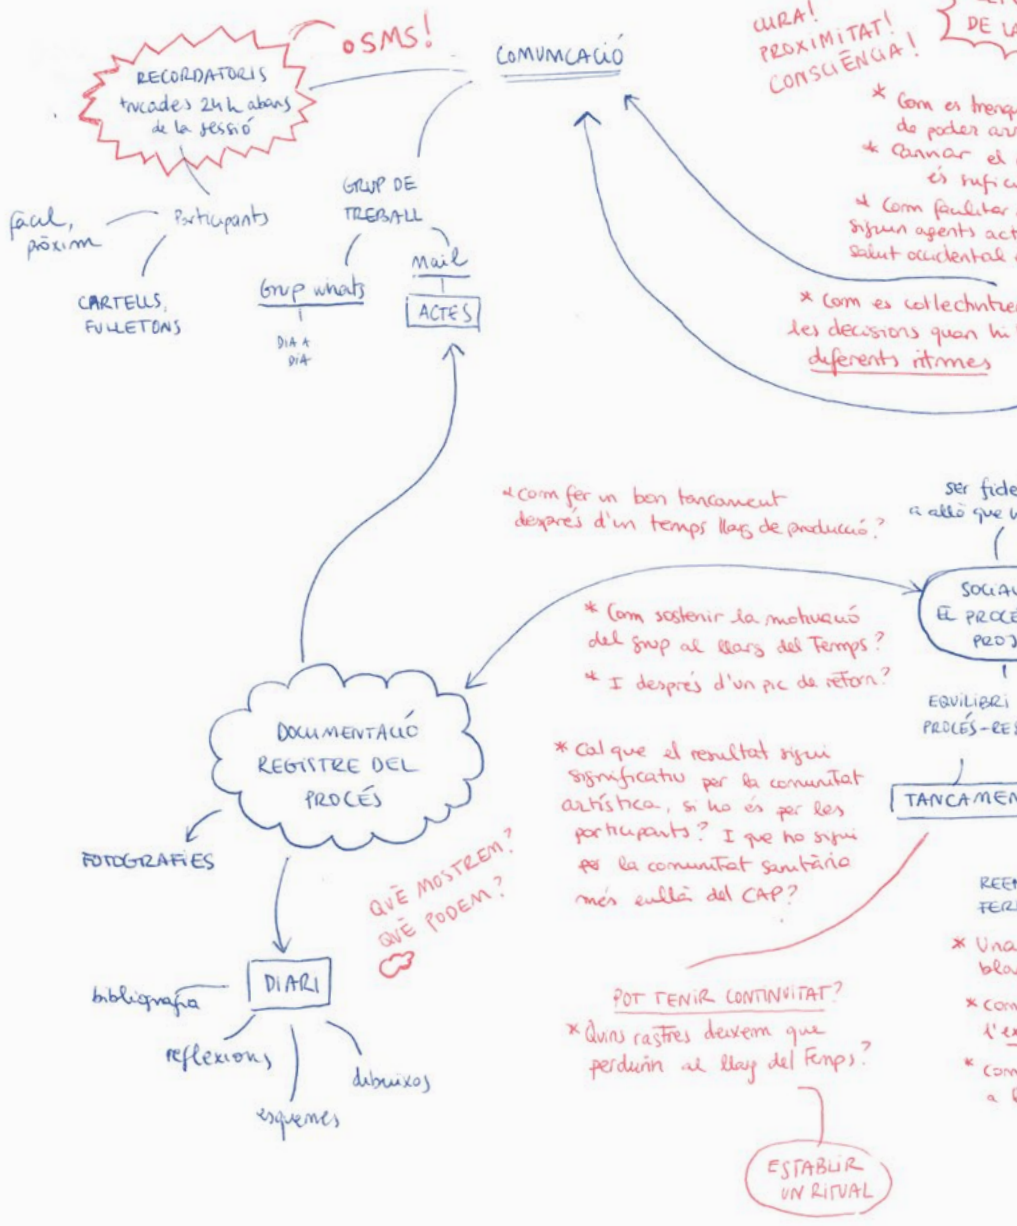 o SMS!
RECORDATORIS
trucades 24h abans
de la sessió
COMUNICACIÓ
CURA!
PROXIMITAT!
CONSCIÈNCIA!
DE LA
* Com es trenqu
de poder
* Canviar el
és sufic
* Com facilitar
siguin agents act
salut occidental
* Com es col·lectivitzen
les decisions quan hi
diferents ritmes
fàcil,
pròxim
Participants
CARTELLS,
FULLETONS
GRUP DE
TREBALL
Grup whats
DIA A
DIA
Mail
ACTES
* Com fer un bon tancament
després d'un temps llarg de producció?
ser fide
a allò que v
* Com sostenir la motivació
del grup al llarg del Temps?
* I després d'un pic de retorn?
EL PROCÉ
PROJ
EQUILIBRI
PROCÉS-RES
TANCAMEN
DOCUMENTACIÓ
REGISTRE DEL
PROCÉS
FOTOGRAFIES
QUÈ MOSTREM?
QUÈ PODEM?
* Cal que el resultat sigui
significatiu per la comunitat
artística, si ho és per les
participants? I que ho sigui
per la comunitat sanitària
més enllà del CAP?
DIARI
bibliografia
reflexions
esquemes
dibuixos
POT TENIR CONTINUITAT?
* Quins rastres deixem que
perdurin al llarg del Temps?
ESTABLIR
UN RITUAL
REEN
FER
* Una
bla
* com
l'ex
* com
a